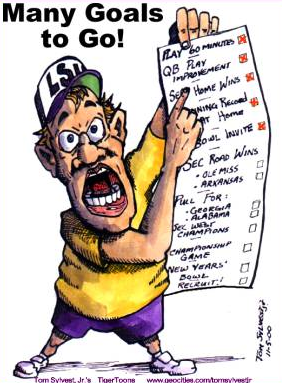 Many Goals
to Go!
LSU
PLAY 60 MINUTES
QB PLAY
IMPROVEMENT
SEC HOME WINS
RECORD
AT HOME
BOWL INVITE
SEC ROAD WINS
- OLE MISS
- ARKANSAS
PULL FOR:
- GEORGIA
- ALABAMA
SEC WEST
CHAMPIONS
CHAMPIONSHIP
GAME
NEW YEARS'
BOWL
RECRUIT!
TOM SYLVEST JR.
11-5-00
Tom Sylvest, Jr.'s TigerToons www.geocities.com/tomsylvestjr